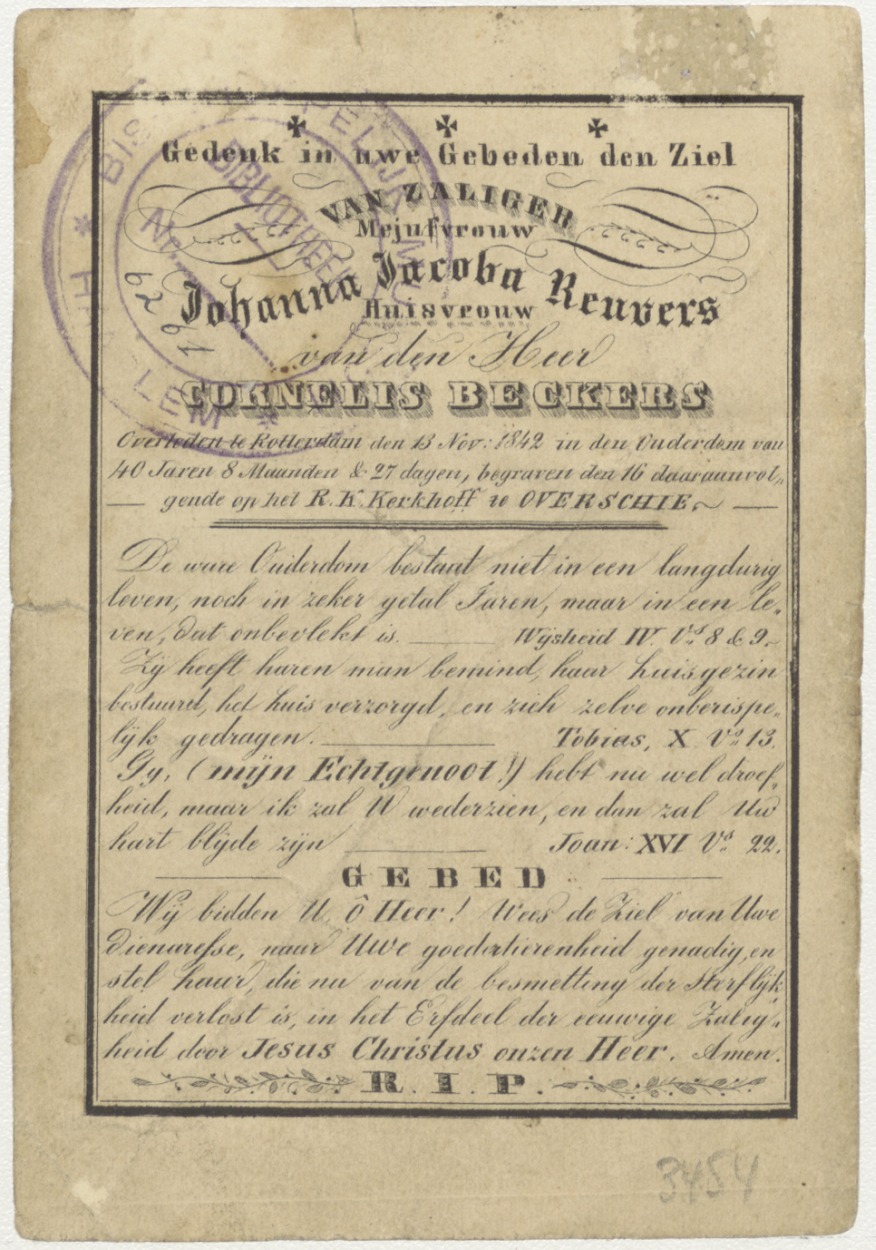 Gedenk in uwe Gebeden den Ziel
VAN ZALIGER
Mejufvrouw
Johanna Jacoba Reuvers
Huisvrouw
van den Heer
CORNELIS BECKERS
Overleden te Rotterdam den 13 Nov: 1842 in den Ouderdom van
40 Jaren 8 Maanden & 27 dagen, begraven den 16 daaraanvol„
gende op het R. K. Kerkhoff te OVERSCHIE
De ware Ouderdom bestaat niet in een langdurig
leven, noch in zeker getal Jaren, maar in een le„
ven, dat onbevlekt is. Wijsheid IV. Vs 8 & 9.
Zij heeft haren man bemind, haar huisgezin
bestuurd, het huis verzorgd, en zich zelve onberispe„
lijk gedragen. Tobias, X Vs 13.
Gy, (mijn Echtgenoot!) hebt nu wel droef„
heid, maar ik zal U wederzien, en dan zal Uw
hart blijde zijn Joan: XVI Vs 22.
GEBED
Wij bidden U, ô Heer! Wees de Ziel van Uwe
dienaresse, naar Uwe goedertierenheid genadig, en
stel haar, die nu van de besmetting der Sterflijk„
heid verlost is, in het Erfdeel der eeuwige Zalig„
heid door Jesus Christus onzen Heer. Amen.
R. I. P.
BIBLIOTHEEK
No.
6291
3454